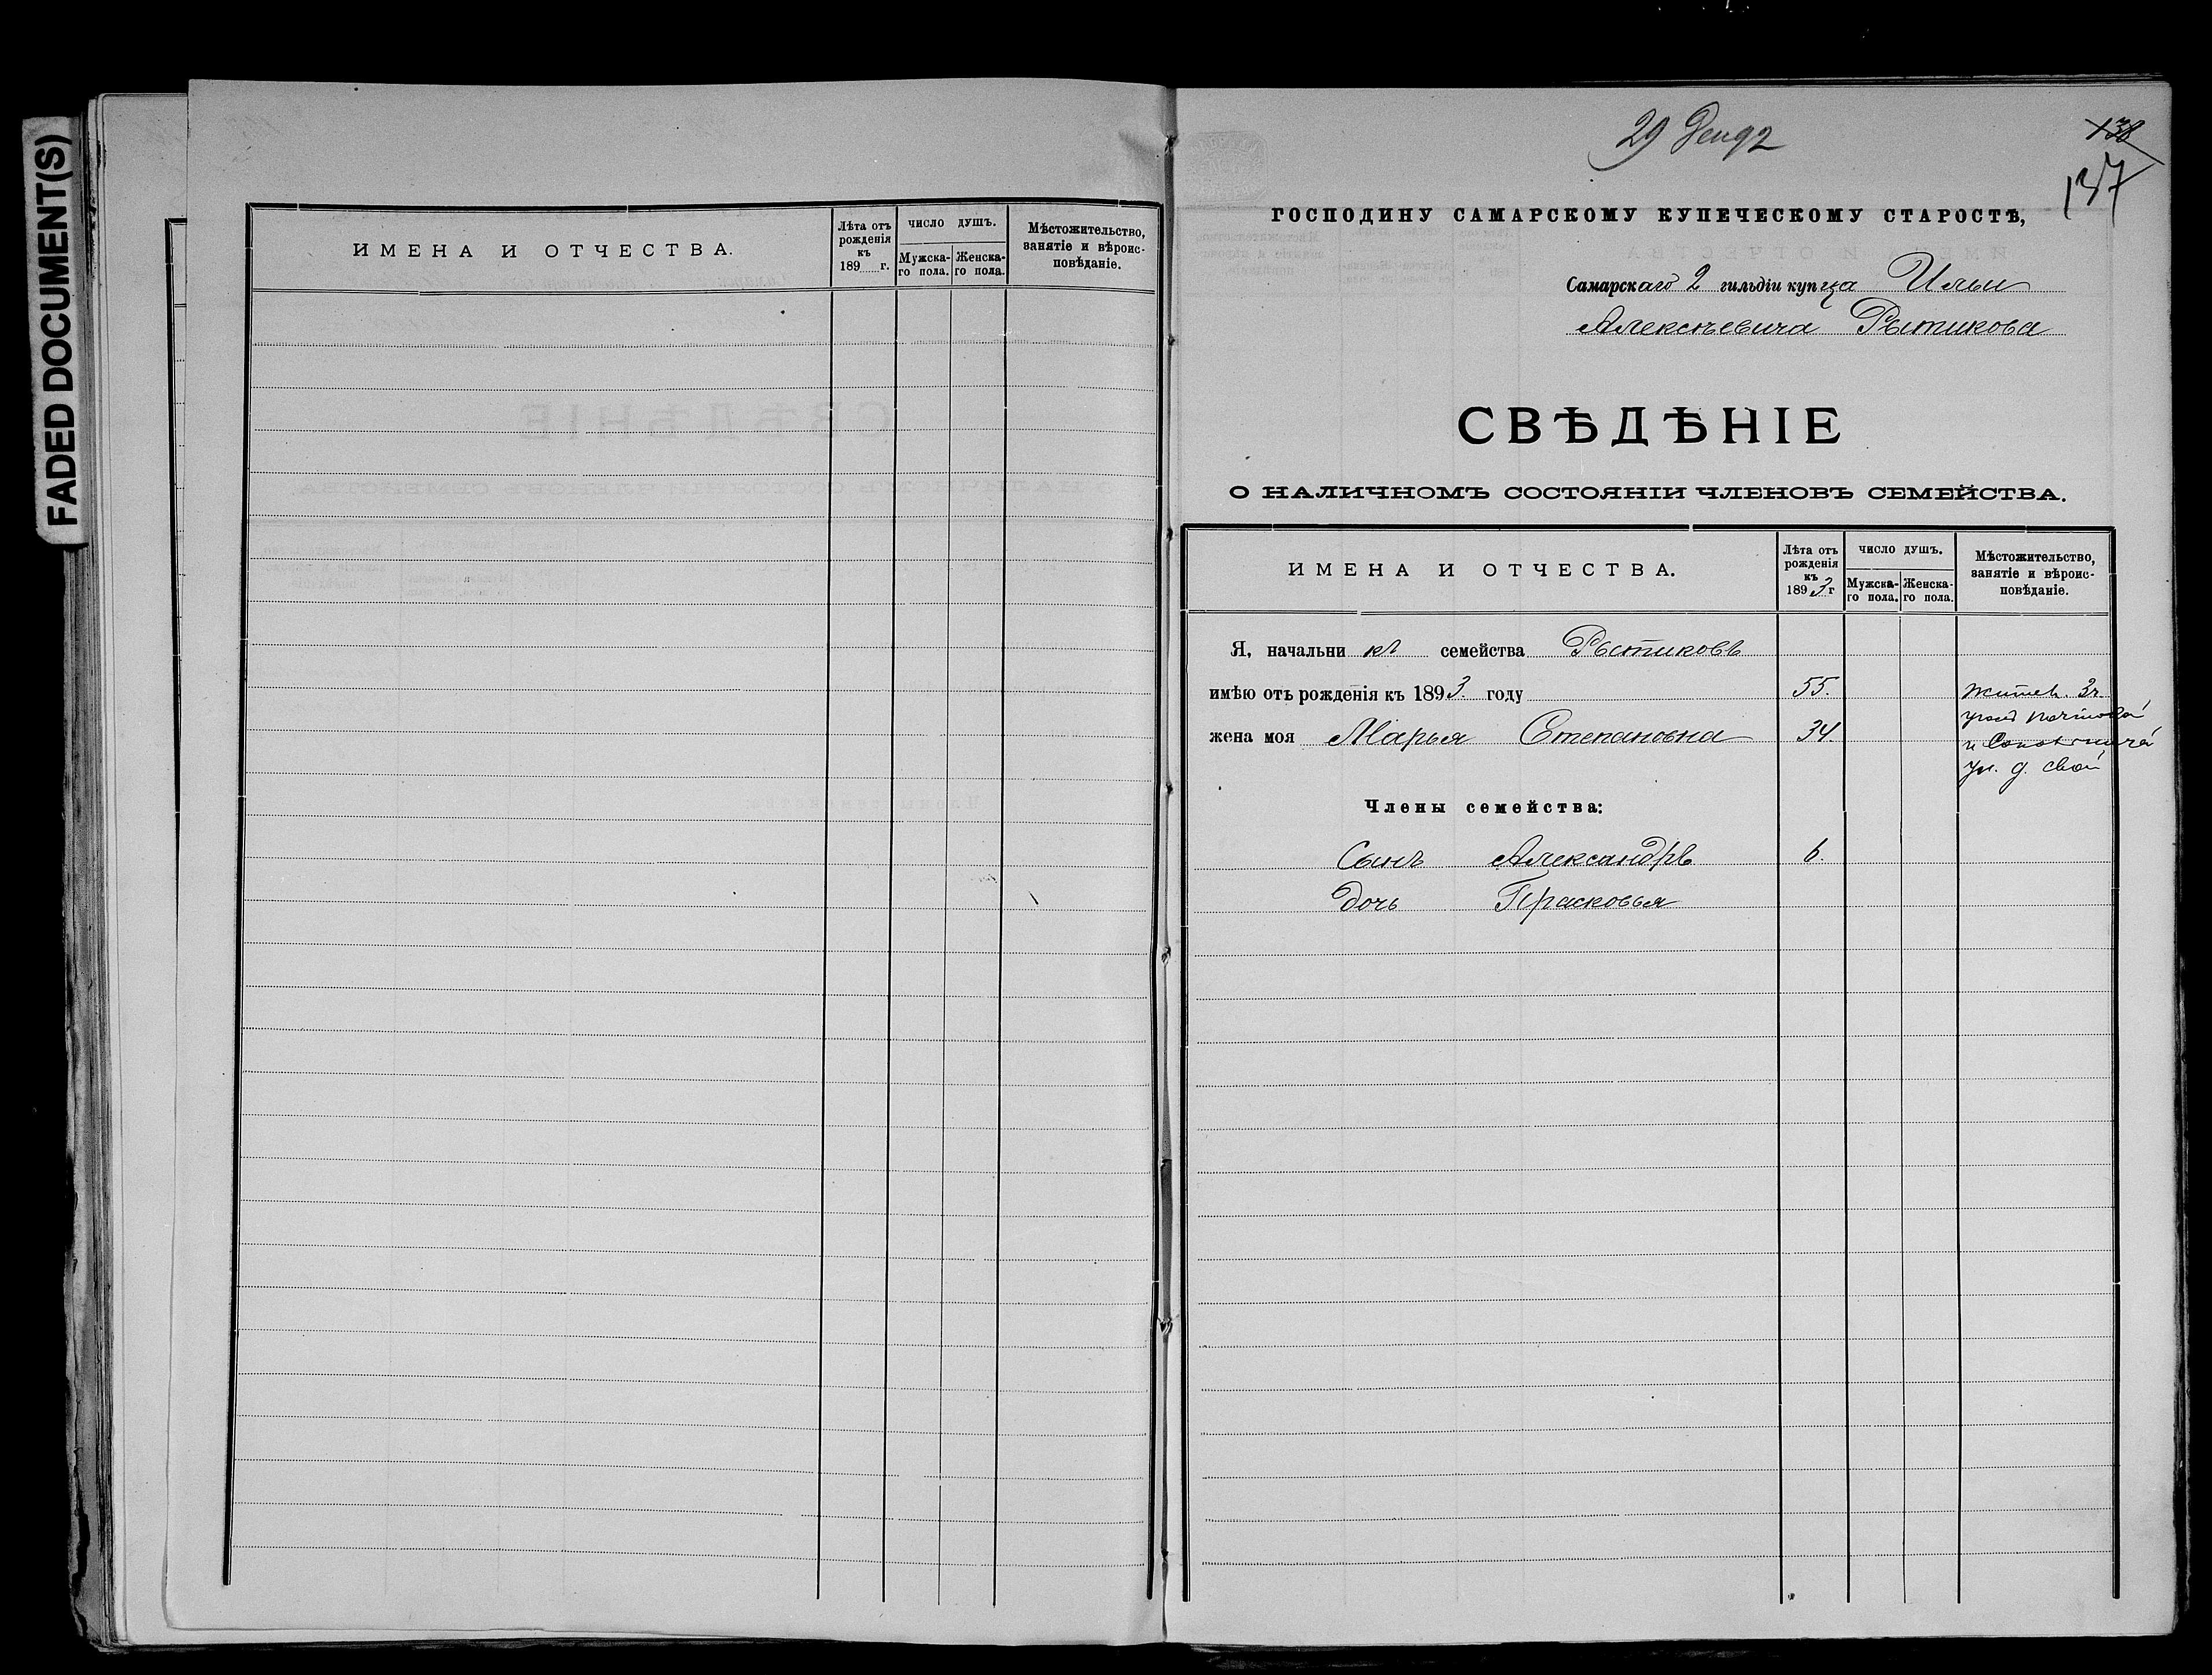 FADED DOCUMENT(S)
ИМЕНА И ОТЧЕСТВА.
Лѣта отъ
рожденія
къ
189 г.
ЧИСЛО ДУШЪ.
Мужска-
го пола.
Женска-
го пола.
Мѣстожительство,
занятіе и вѣроис-
повѣданіе.
29 Дек 92
138
137
ГОСПОДИНУ САМАРСКОМУ КУПЕЧЕСКОМУ СТАРОСТѢ,
Самарскаго 2 гильдіи купца Ильи
Алексѣевича Рытикова
СВѢДѢНІЕ
О НАЛИЧНОМЪ СОСТОЯНІИ ЧЛЕНОВЪ СЕМЕЙСТВА.
ИМЕНА И ОТЧЕСТВА.
Лѣта отъ
рожденія
къ
1893 г
ЧИСЛО ДУШЪ.
Мужска-
го пола.
Женска-
го пола.
Мѣстожительство,
занятіе и вѣроис-
повѣданіе.
Я, начальникъ семейства Рытиковъ
имѣю отъ рожденія къ 1893. году 55.
жена моя Марья Степановна 34.
Житель. 3 ч.
и
ул. д. свой
Члены семейства:
Сынъ Александръ 6.
Дочь Прасковья